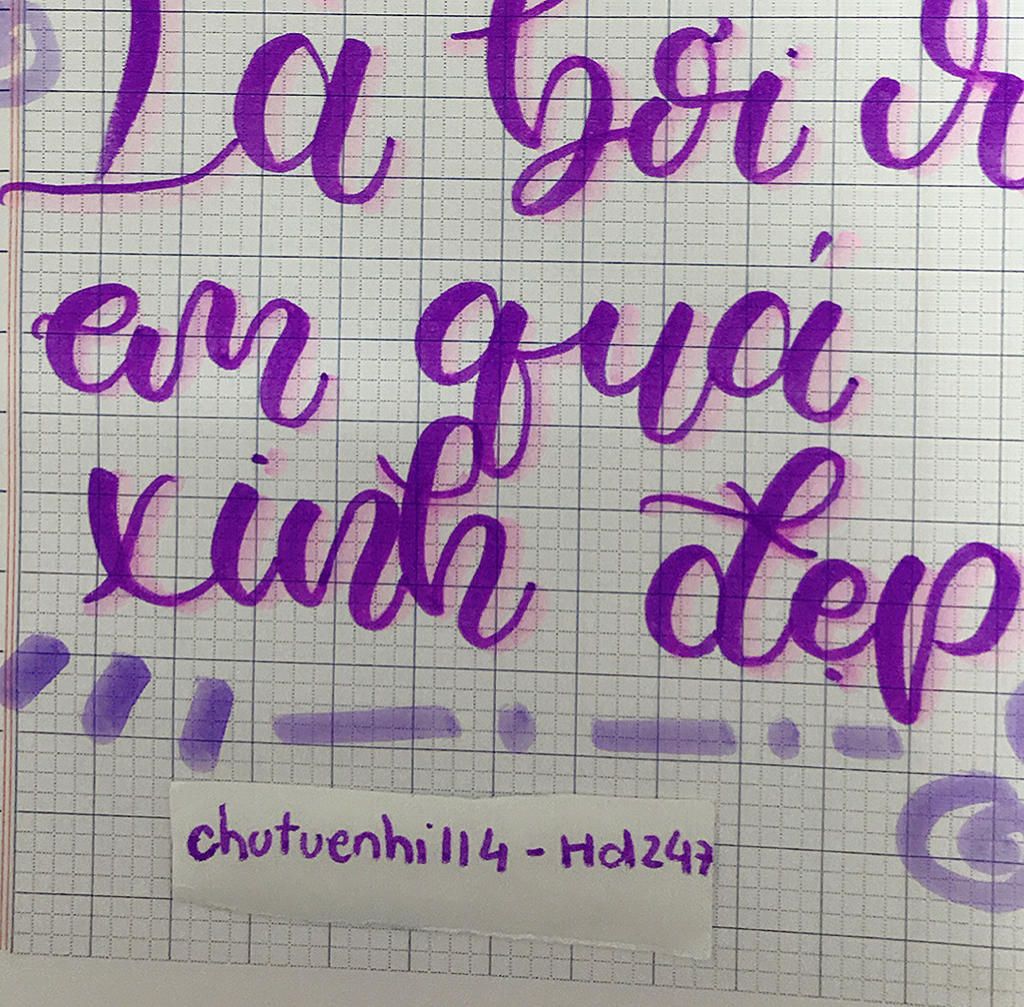 La bơi
em quá
xinh đẹp
chutuenhi114 - Hd247